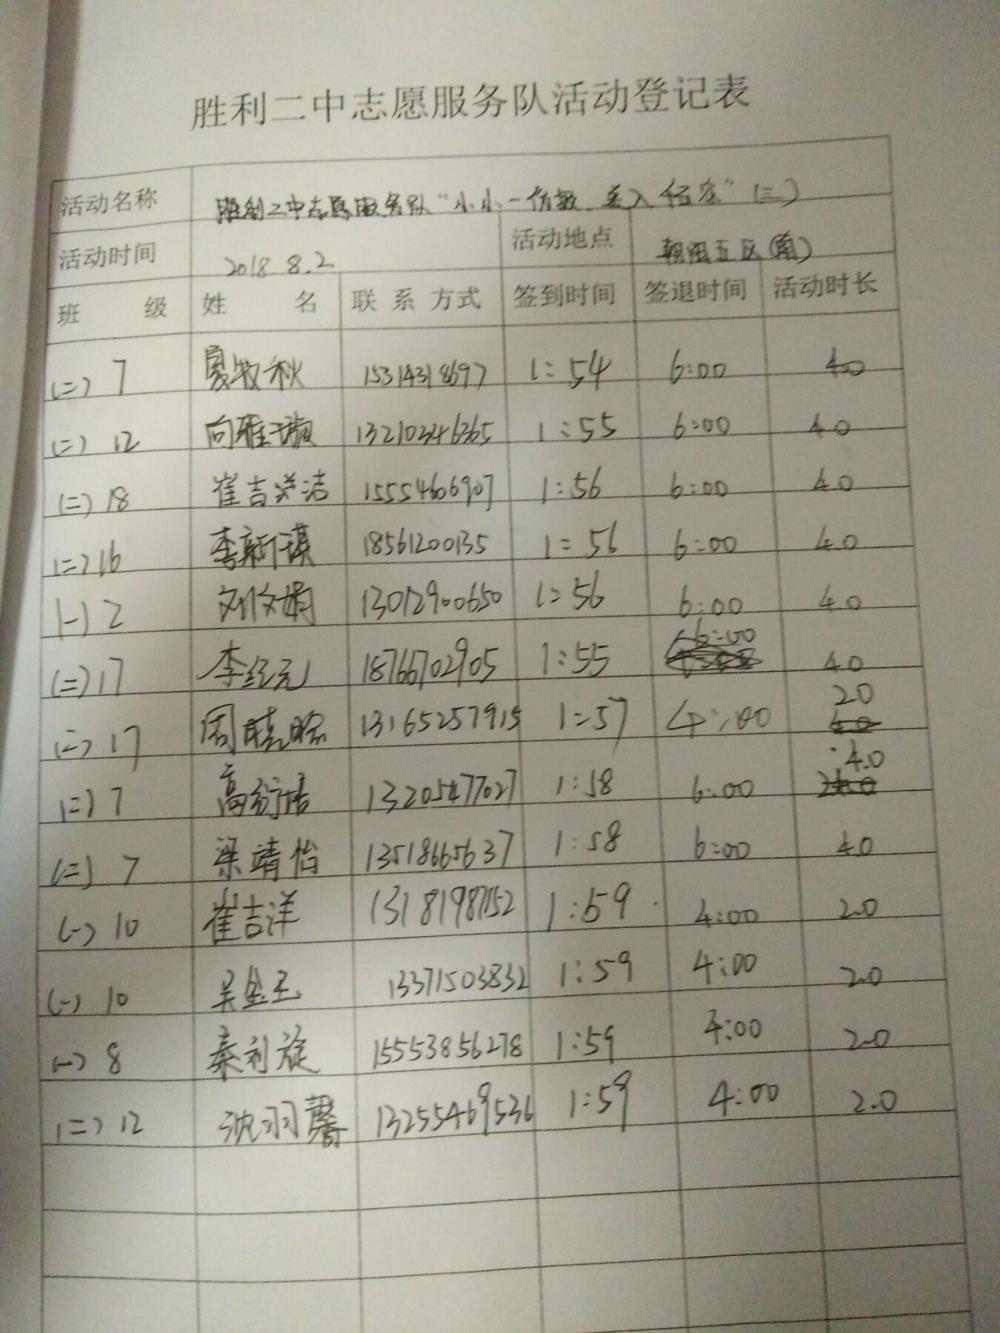 胜利二中志愿服务队活动登记表
活动名称 胜利二中志愿服务队“小小一信报 关入 (三)
活动时间 2018.8.2 活动地点 朝阳五区(南)
班 级 姓 名 联系方式 签到时间 签退时间 活动时长
(二) 7 夏牧秋 15314318697 1:54 6:00 4.0
(二) 12 向雅 13210346365 1:55 6:00 4.0
(二) 18 崔吉洁 15554606907 1:56 6:00 4.0
(二) 16 李新琪 18561200135 1:56 6:00 4.0
(一) 2 刘文娟 13012900650 1:56 6:00 4.0
(二) 17 李元 18766702905 1:55 6:00 4.0
(二) 17 周晓 13165257915 1:57 4:00 2.0
(二) 7 高 13205477027 1:58 6:00 4.0
(二) 7 梁靖怡 13518665637 1:58 6:00 4.0
(一) 10 崔吉洋 13181987152 1:59 4:00 2.0
(一) 10 吴金玉 13371503832 1:59 4:00 2.0
(一) 8 秦利旋 15553856278 1:59 4:00 2.0
(二) 12 沈羽馨 13255469536 1:59 4:00 2.0